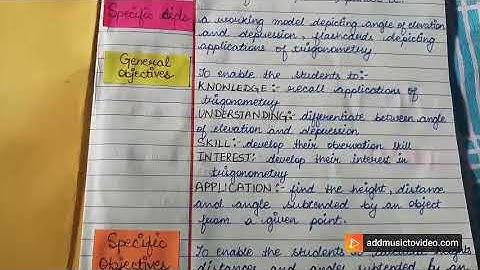 Specific aids
a working model depicting angle of elevation
and depression, flashcards depicting
applications of trigonometry
General
Objectives
To enable the students to:-
KNOWLEDGE:- recall applications of
trigonometry
UNDERSTANDING:- differentiate between angle
of elevation and depression
SKILL:- develop their observation skill
INTEREST:- develop their interest in
trigonometry
APPLICATION:- find the height, distance
and angle subtended by an object
from a given point.
Specific
Objectives
To enable the students to
distances and angles subtended by an
addmusictovideo.com